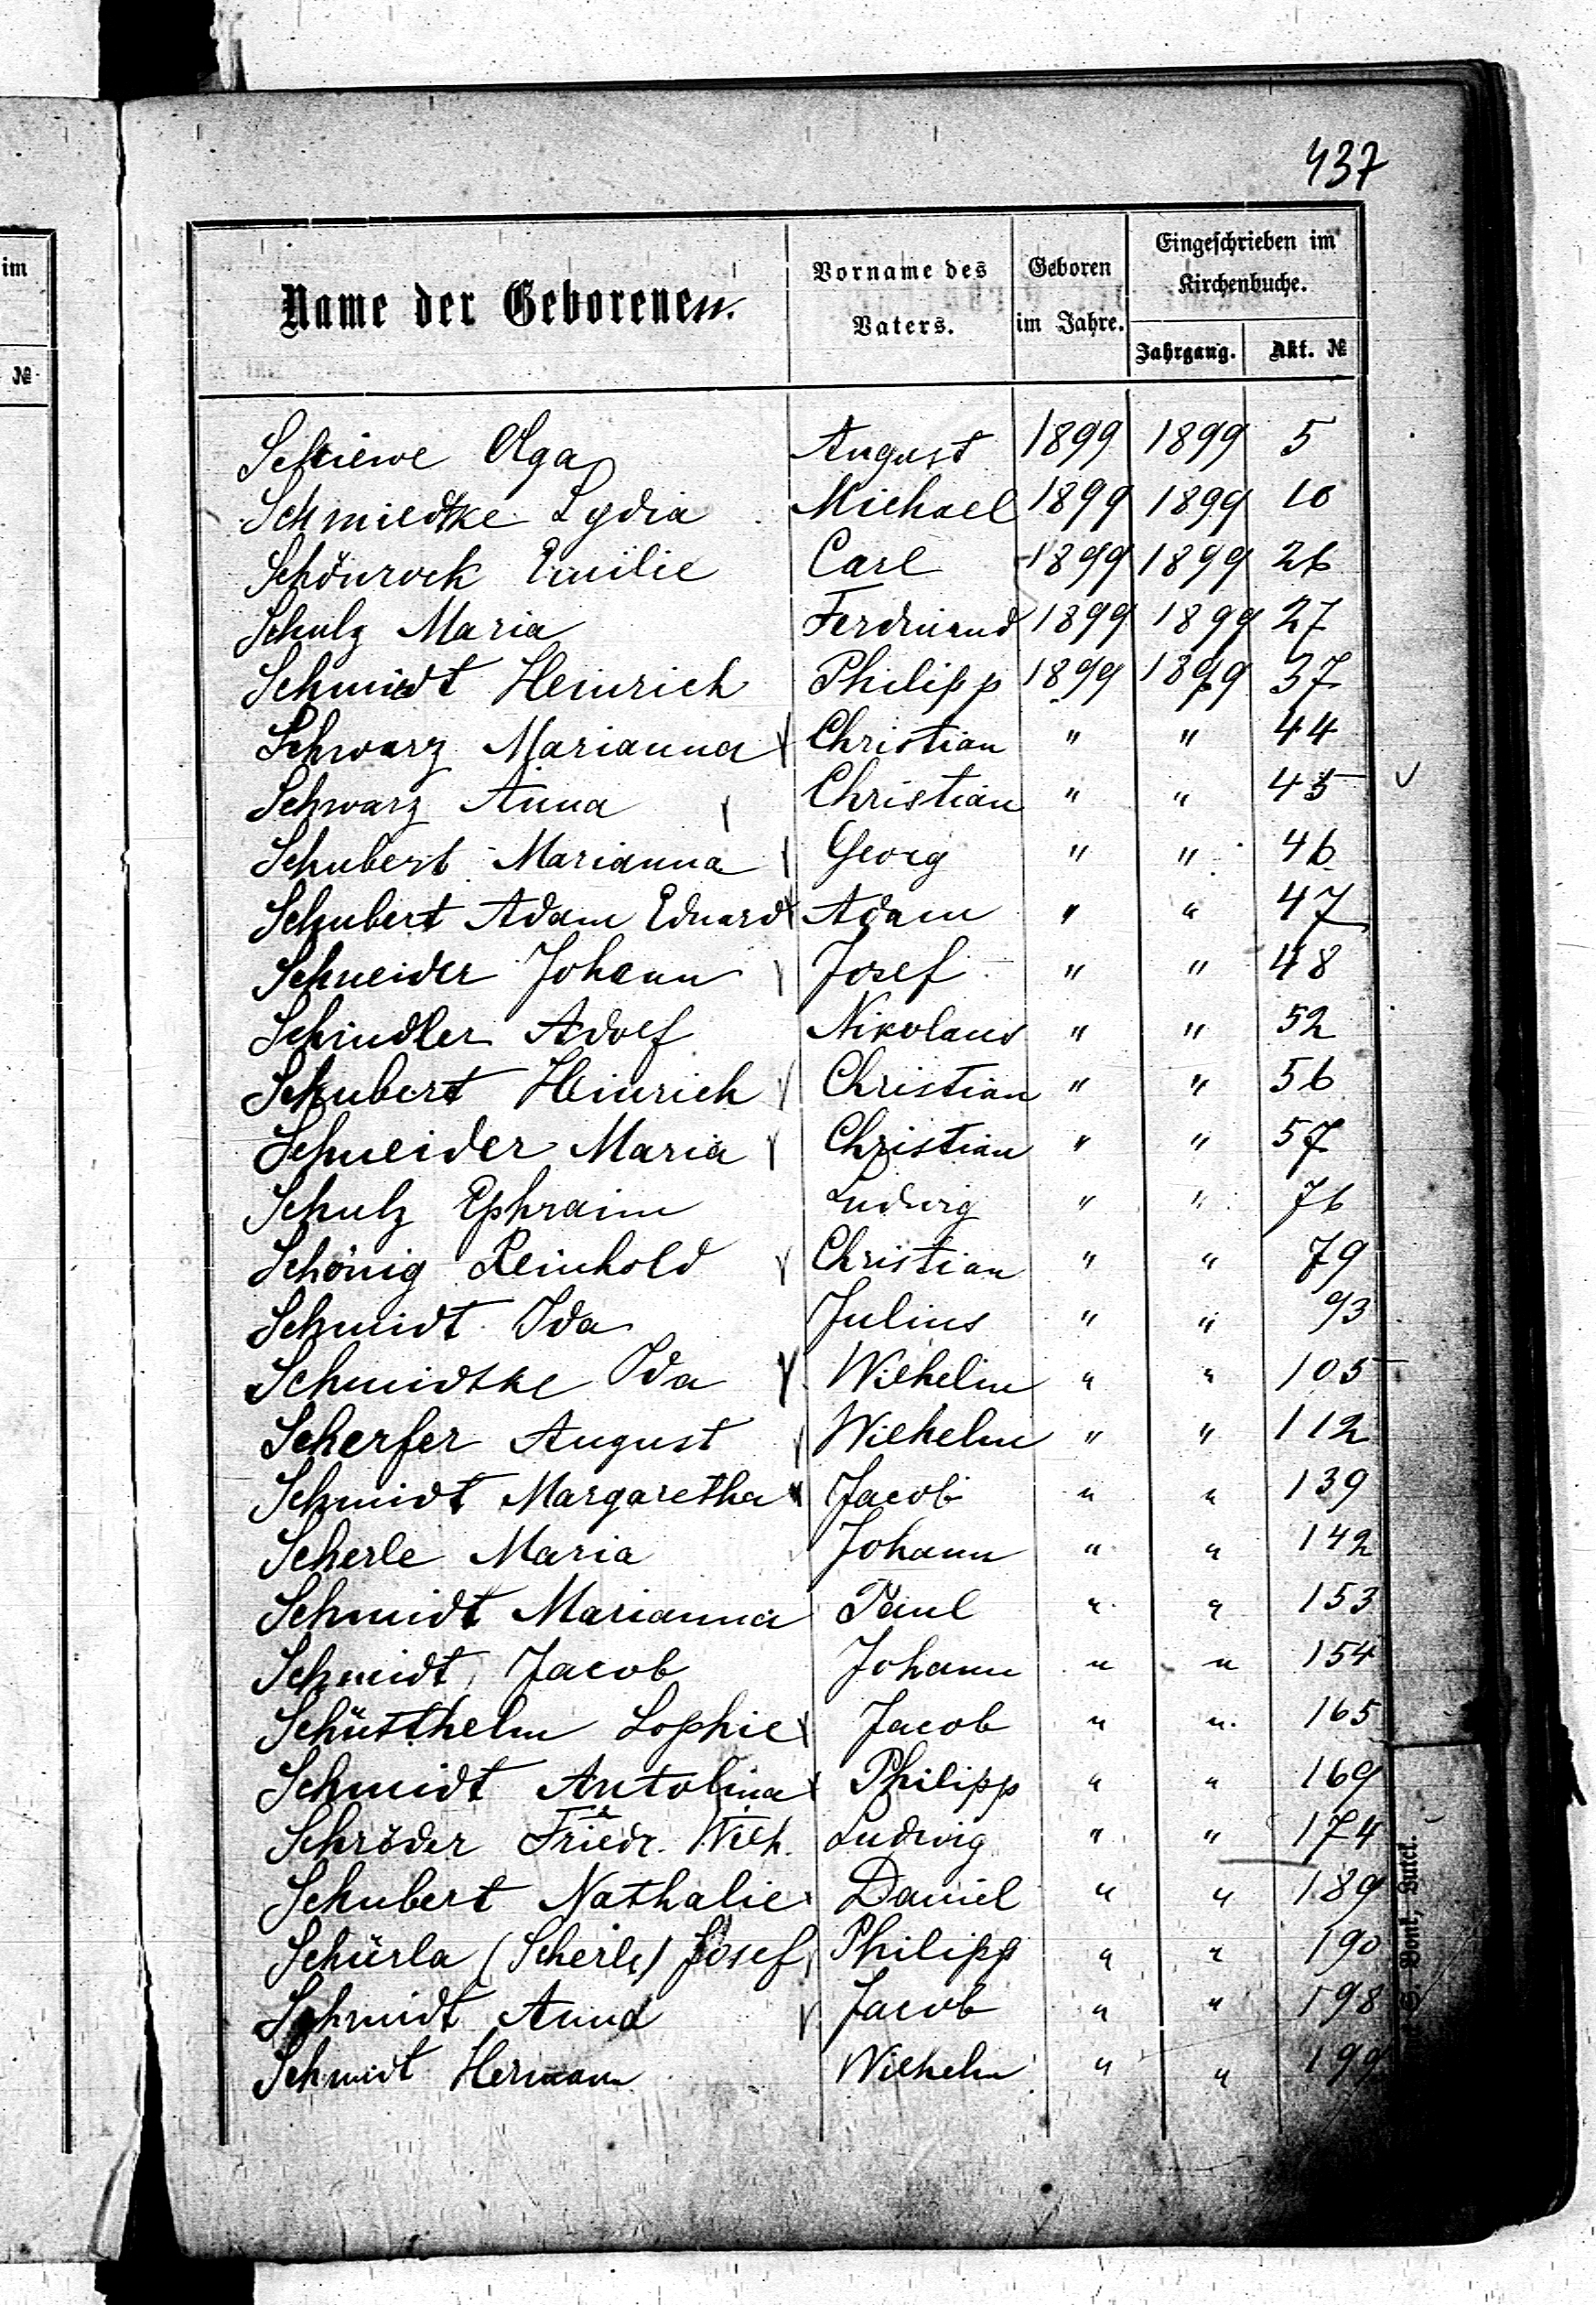 437
im
№
Name der Geborenen. Vorname des Vaters. Geboren im Jahre. Eingeschrieben im Kirchenbuche.
Jahrgang. Akt. №
Schiewe Olga August 1899 1899 5
Schmiedtke Lydia Michael 1899 1899 10
Schönrock Emilie Carl 1899 1899 26
Schulz Maria Ferdinand 1899 1899 27
Schmidt Heinrich Philipp 1899 1899 37
Schwarz Marianna Christian " " 44
Schwarz Anna Christian " " 45
Schubert Marianna Georg " " 46
Schubert Adam Eduard Adam " " 47
Schneider Johann Josef " " 48
Schindler Adolf Nikolaus " " 52
Schubert Heinrich Christian " " 56
Schneider Maria Christian " " 57
Schulz Ephraim Ludwig " " 76
Schönig Reinhold Christian " " 79
Schmidt Ida Julius " " 93
Schmidtke Ida Wilhelm " " 105
Scherfer August Wilhelm " " 112
Schmidt Margaretha Jacob " " 139
Scherle Maria Johann " " 142
Schmidt Marianna Paul " " 153
Schmidt, Jacob Johann " " 154
Schüsthelm Sophie Jacob " " 165
Schmidt Antolina Philipp " " 169
Schröder Friedr. Wilh. Ludwig " " 174
Schubert Nathalie Daniel " " 189
Schürla (Scherle) Josef Philipp " " 190
Schmidt Anna Jacob " " 198
Schmidt Hermann Wilhelm " " 199